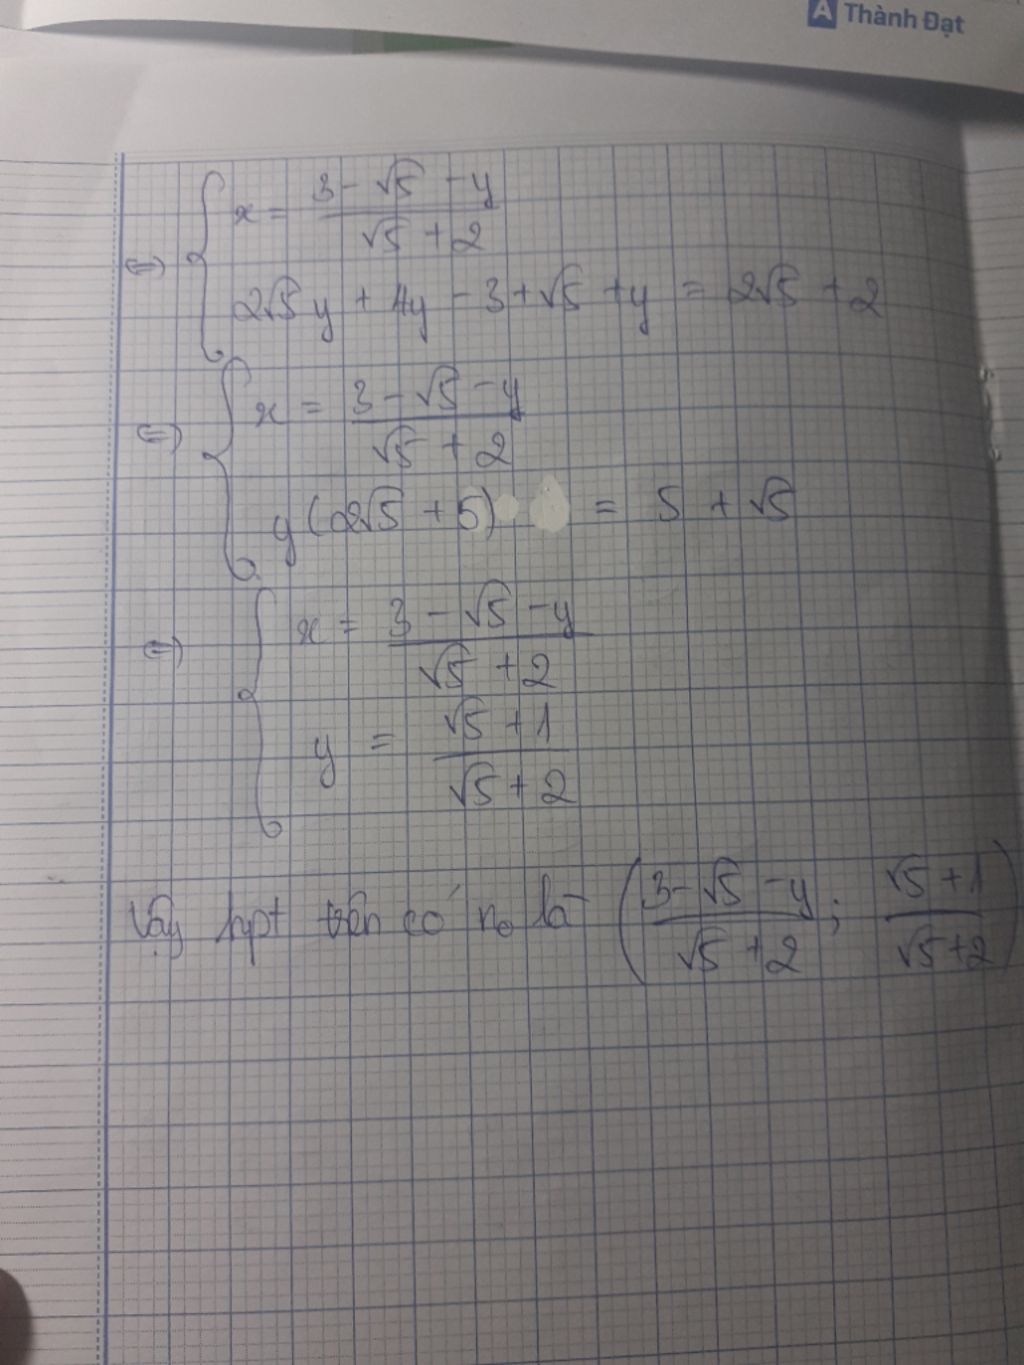 A Thành Đạt
⇔ { x = (3 - √5 - y)/(√5 + 2)
2√5y + 4y - 3 + √5 + y = 2√5 + 2
⇔ { x = (3 - √5 - y)/(√5 + 2)
y(2√5 + 5) = 5 + √5
⇔ { x = (3 - √5 - y)/(√5 + 2)
y = (√5 + 1)/(√5 + 2)
Vậy hpt trên có n₀ là ((3 - √5 - y)/(√5 + 2); (√5 + 1)/(√5 + 2))